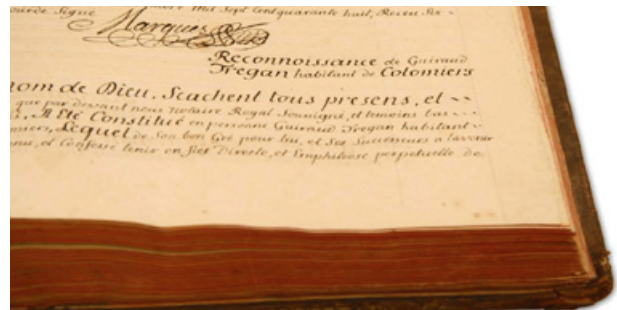 ourde Signe
mil Sept Cent quarante huit, Receu Six -
Marquis
Reconnoissance de Guiraud
Tregan habitant de Colomiers
nom de Dieu. Scachent tous presens, et --
que par devant nous notaire Royal Soussigné, et temoins bas ---
A Eté Constitué en personne Guiraud Tregan habitant -
miers, Lequel de Son bon Gré pour lui, et Ses Successeurs a l'avenir
et Confesse tenir en fief Directe, et Emphiteose perpetuelle de